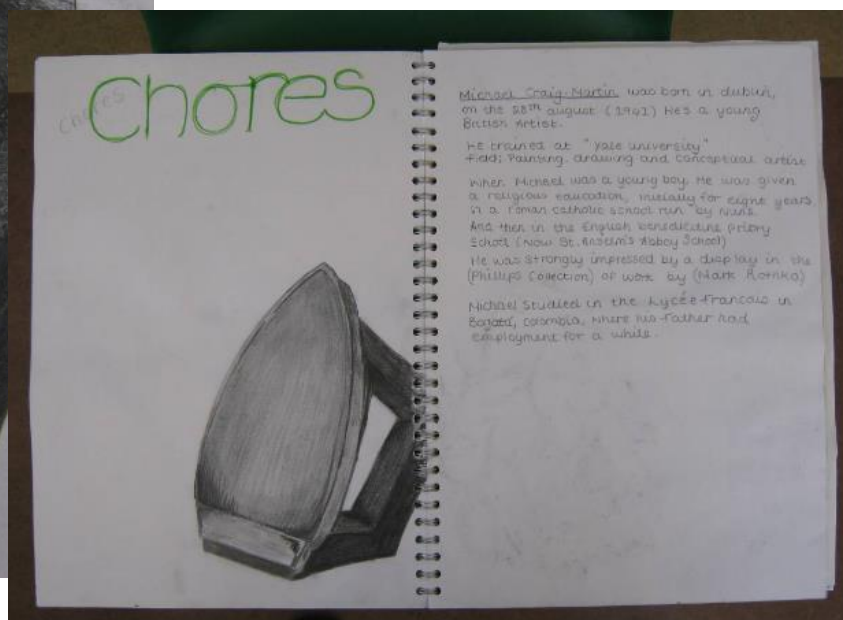 Chores
chores
Michael Craig-Martin was born in dublin,
on the 28TH august (1941) He's a young
British Artist.
He trained at "Yale university"
Field; Painting, drawing and conceptual artist
When Michael was a young boy, He was given
a religious education, initially for eight years
in a roman catholic school run by Nuns.
And then in the English benedictine priory
School (Now St. Anselm's Abbey School)
He was strongly impressed by a display in the
(Phillips Collection) of work by (Mark Rothko)
Michael Studied in the Lycée Francais in
Bogotá, Colombia, where his father had
employment for a while.